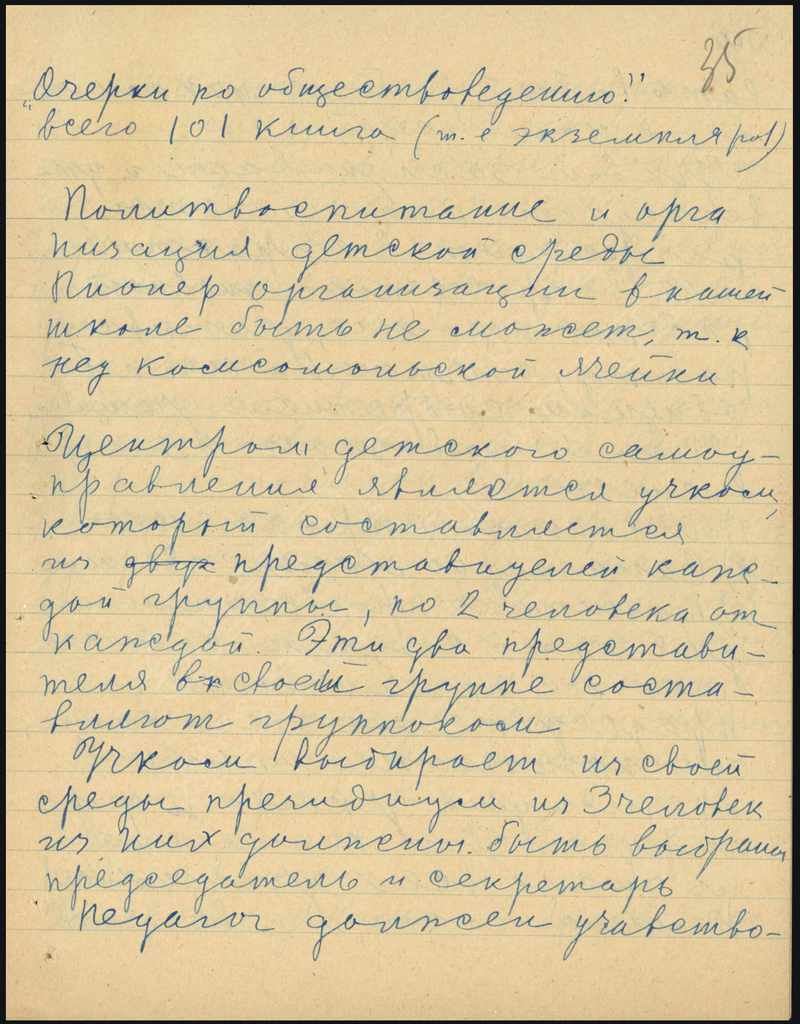 35
"Очерки по обществоведению."
всего 101 книга (т. е экземпляров)
Политвоспитание и орга
низация детской среды
Пионер организации в нашей
школе быть не может, т. к
нез комсомольской ячейки
Центром детского самоу-
правления является учком,
который составляется
из двух представицелей каж-
дой группы, по 2 человека от
каждой. Эти два представи-
теля в своей группе соста-
вляют группоком
Учком выбирает из своей
среды президиум из 3 человек
из них должны быть выбраны
председатель и секретарь
Педагог должен учавство-